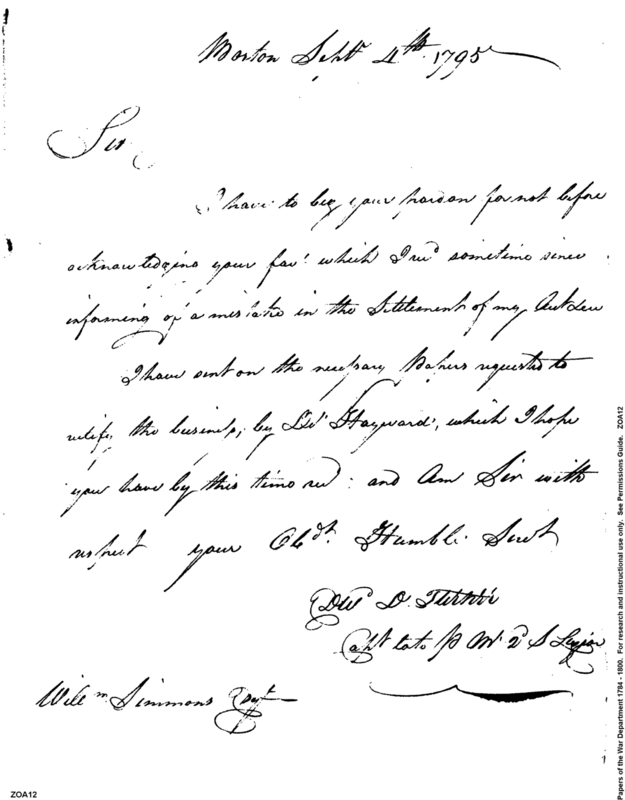 Boston Septr. 4th. 1795
Sir
I have to beg your pardon for not before
acknowledging your favr. which I recd sometime since
informing of a mistake in the Settlement of my
I have sent on the necessary Papers requested to
the business, by Hayward, which I hope
you have by this time recd: and Am Sir with
respect your Obdt. Humble Servt
Edwd D. Turner
Capt late P Mr. 2d S Legion
Willm Simmons Esqr
ZOA12
Papers of the War Department 1784 - 1800. For research and instructional use only. See Permissions Guide. ZOA12